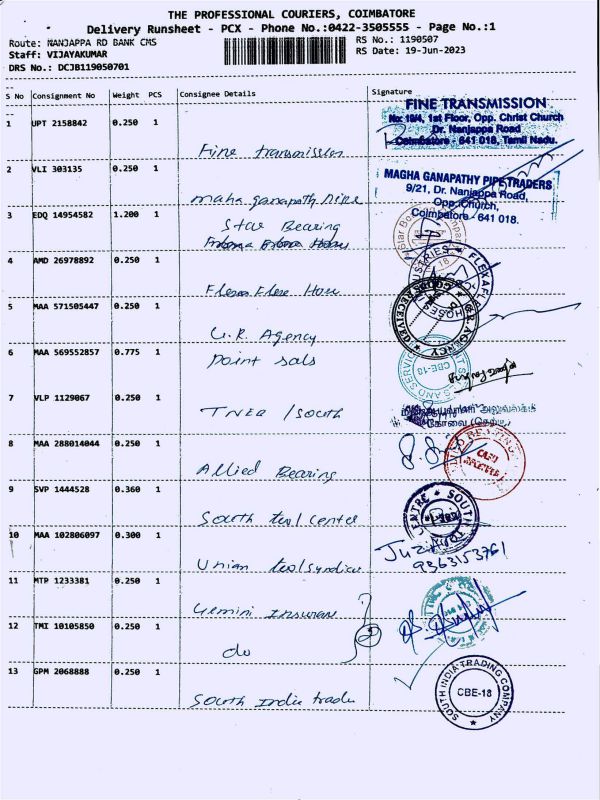 THE PROFESSIONAL COURIERS, COIMBATORE
Delivery Runsheet - PCX - Phone No.:0422-3505555 - Page No.:1
Route: NANJAPPA RD BANK CMS
RS No.: 1190507
Staff: VIJAYAKUMAR
RS Date: 19-Jun-2023
DRS No.: DCJB119050701
S No Consignment No Weight PCS Consignee Details Signature
1 UPT 2158842 0.250 1
Fine transmission
FINE TRANSMISSION
No: 19/4, 1st Floor, Opp. Christ Church
Dr. Nanjappa Road
Coimbatore - 641 018, Tamil Nadu.
2 VLI 303135 0.250 1
maha ganapath
MAGHA GANAPATHY PIPE TRADERS
9/21, Dr. Nanjappa Road,
Opp. Church,
Coimbatore - 641 018.
3 EDQ 14954582 1.200 1
Star Bearing
4 AMD 26978892 0.250 1
5 MAA 571505447 0.250 1
U.R. Agency
6 MAA 569552857 0.775 1
Point sals
CBE-18
7 VLP 1129067 0.250 1
TNEA / South
8 MAA 288014044 0.250 1
Allied Bearing
9 SVP 1444528 0.360 1
South tool center
CENTRE ★ SOUTH
10 MAA 102806097 0.300 1
Union tool syndica
9363153761
11 MTP 1233381 0.250 1
Gemini Insuran
12 TMI 10105850 0.250 1
do
13 GPM 2068888 0.250 1
South India trade
SOUTH INDIA TRADING COMPANY
CBE-18